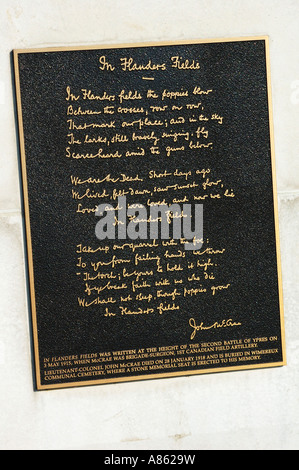 In Flanders Fields
In Flanders fields the poppies blow
Between the crosses, row on row,
That mark our place; and in the sky
The larks, still bravely singing, fly
Scarce heard amid the guns below.
We are the Dead. Short days ago
We lived, felt dawn, saw sunset glow,
Loved and were loved, and now we lie
In Flanders fields.
Take up our quarrel with the foe:
To you from failing hands we throw
The torch; be yours to hold it high.
If ye break faith with us who die
We shall not sleep, though poppies grow
In Flanders fields
John McCrae
IN FLANDERS FIELDS WAS WRITTEN AT THE HEIGHT OF THE SECOND BATTLE OF YPRES ON
3 MAY 1915, WHEN MCCRAE WAS BRIGADE-SURGEON, 1ST CANADIAN FIELD ARTILLERY.
LIEUTENANT COLONEL JOHN MCCRAE DIED ON 28 JANUARY 1918 AND IS BURIED IN WIMEREUX
COMMUNAL CEMETERY, WHERE A STONE MEMORIAL SEAT IS ERECTED TO HIS MEMORY.
alamy
Image ID: A8629W
www.alamy.com